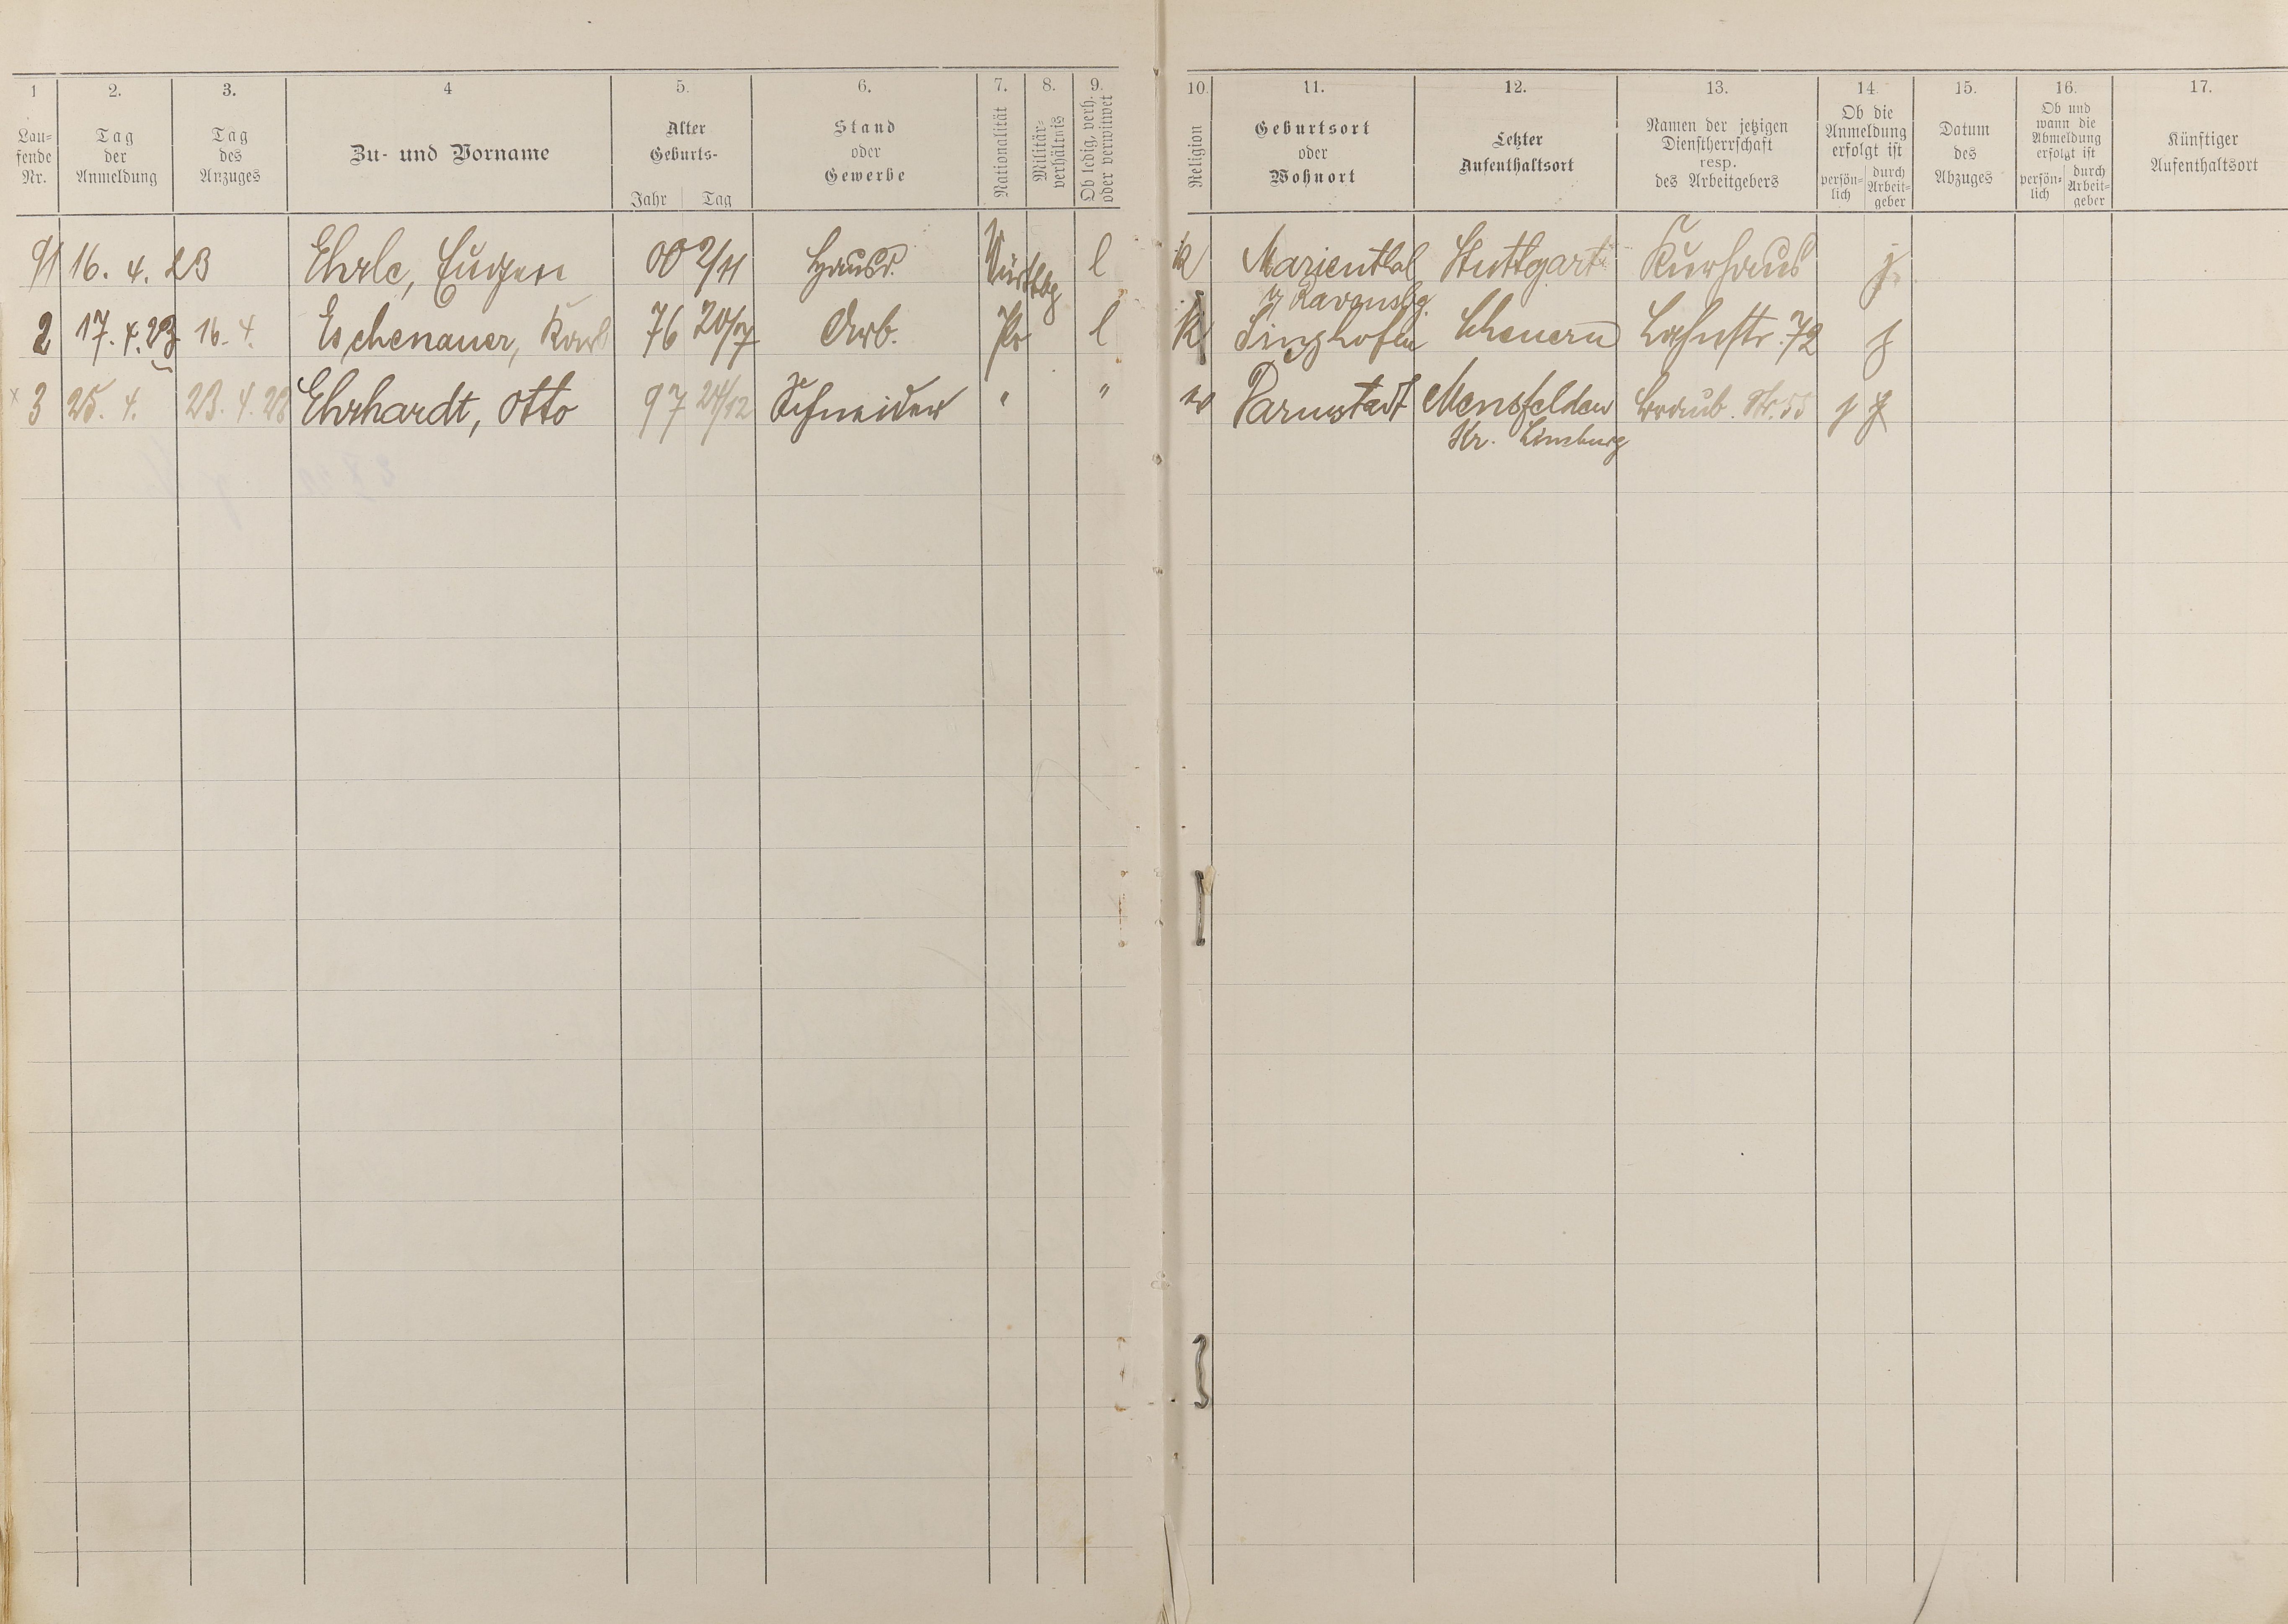 1 2. 3. 4 5. 6. 7. 8. 9. 10. 11. 12. 13. 14. 15. 16. 17.
Lau-
fende
Nr.
Tag
der
Anmeldung
Tag
des
Anzuges
Zu- und Vorname
Alter
Geburts-
Jahr Tag
Stand
oder
Gewerbe
Nationalität
Militär-
verhältnis
Ob ledig, verh.
oder verwitwet
Religion
Geburtsort
oder
Wohnort
Letzter
Aufenthaltsort
Namen der jetzigen
Dienstherrschaft
resp.
des Arbeitgebers
Ob die
Anmeldung
erfolgt ist
persön-
lich
durch
Arbeit-
geber
Datum
des
Abzuges
Ob und
wann die
Abmeldung
erfolgt ist
persön-
lich
durch
Arbeit-
geber
Künftiger
Aufenthaltsort
91 16. 4. 23 Ehrle, Eugen 00 2/11 Hausd. Württbg l k Marienthal Stuttgart Kurhaus j.
Ravensbg.
2 17. 4. 23 16. 4. Eschenauer, Karl 76 20/7 Arb. Pr l k Singhofen Scheuern Lahnstr. 72 j
3 25. 4. 23. 4. 23 Ehrhardt, Otto 97 24/12 Schneider " " Darmstadt Mensfelden Str. 55 j
Kr. Limburg